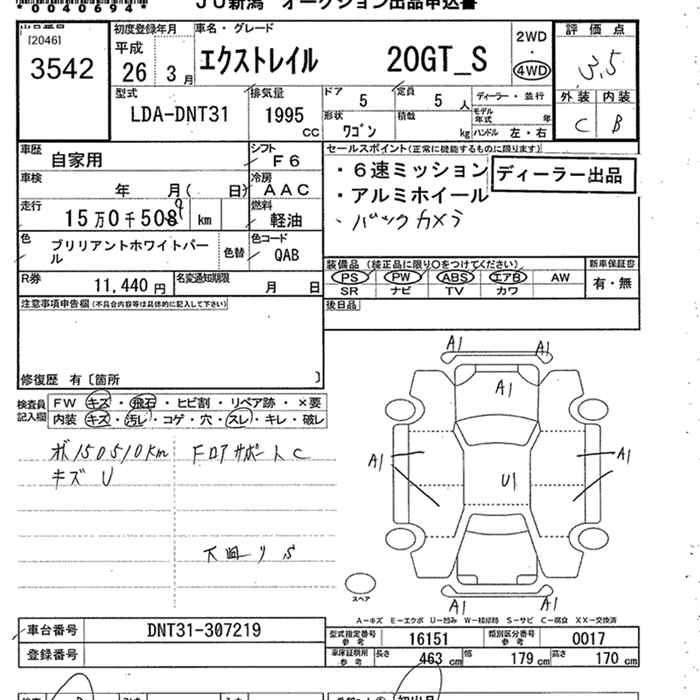 *0040694*
JU新潟 オークション出品申込書
[2046]
3542
初度登録年月
平成
26年 3月
車名・グレード
エクストレイル 20GT_S
2WD
・
4WD
評価点
3.5
外装 内装
C B
型式
LDA-DNT31
排気量
1995
CC
ドア 5
定員 5 人
ディーラー・並行
形状 ワゴン
積載 kg
モデル年式 年
ハンドル 左・右
車歴 自家用
シフト F6
車検 年 月( 日)
冷房 AAC
走行 15万0千508 9 km
燃料 軽油
色 ブリリアントホワイトパール
色替
色コード QAB
R券 11,440円
名変通知期限 月 日
セールスポイント(正常に機能するものに限ります)
・6速ミッション
・アルミホイール
・バックカメラ
ディーラー出品
装備品(純正品に限り〇をつけてください)
新車保証書
PS PW ABS エアB AW
有・無
SR ナビ TV カワ
後日品
注意事項申告欄(不具合内容等は具体的に記入して下さい)
修復歴 有〔箇所 〕
検査員記入欄
FW キズ・飛石・ヒビ割・リペア跡・×要
内装 キズ・汚レ・コゲ・穴・スレ・キレ・破レ
ボ150510km FロアサポートC
キズ U
A1
A1
A1
A1
U1
A1
A1
A1
スペア
A-キズ E-エクボ U-凹み W-補修跡 S-サビ C-腐食 XX-交換済
車台番号 DNT31-307219
登録番号
型式指定番号参考 16151
類別区分番号参考 0017
車庫証明用参考 長さ 463 cm 幅 179 cm 高さ 170 cm